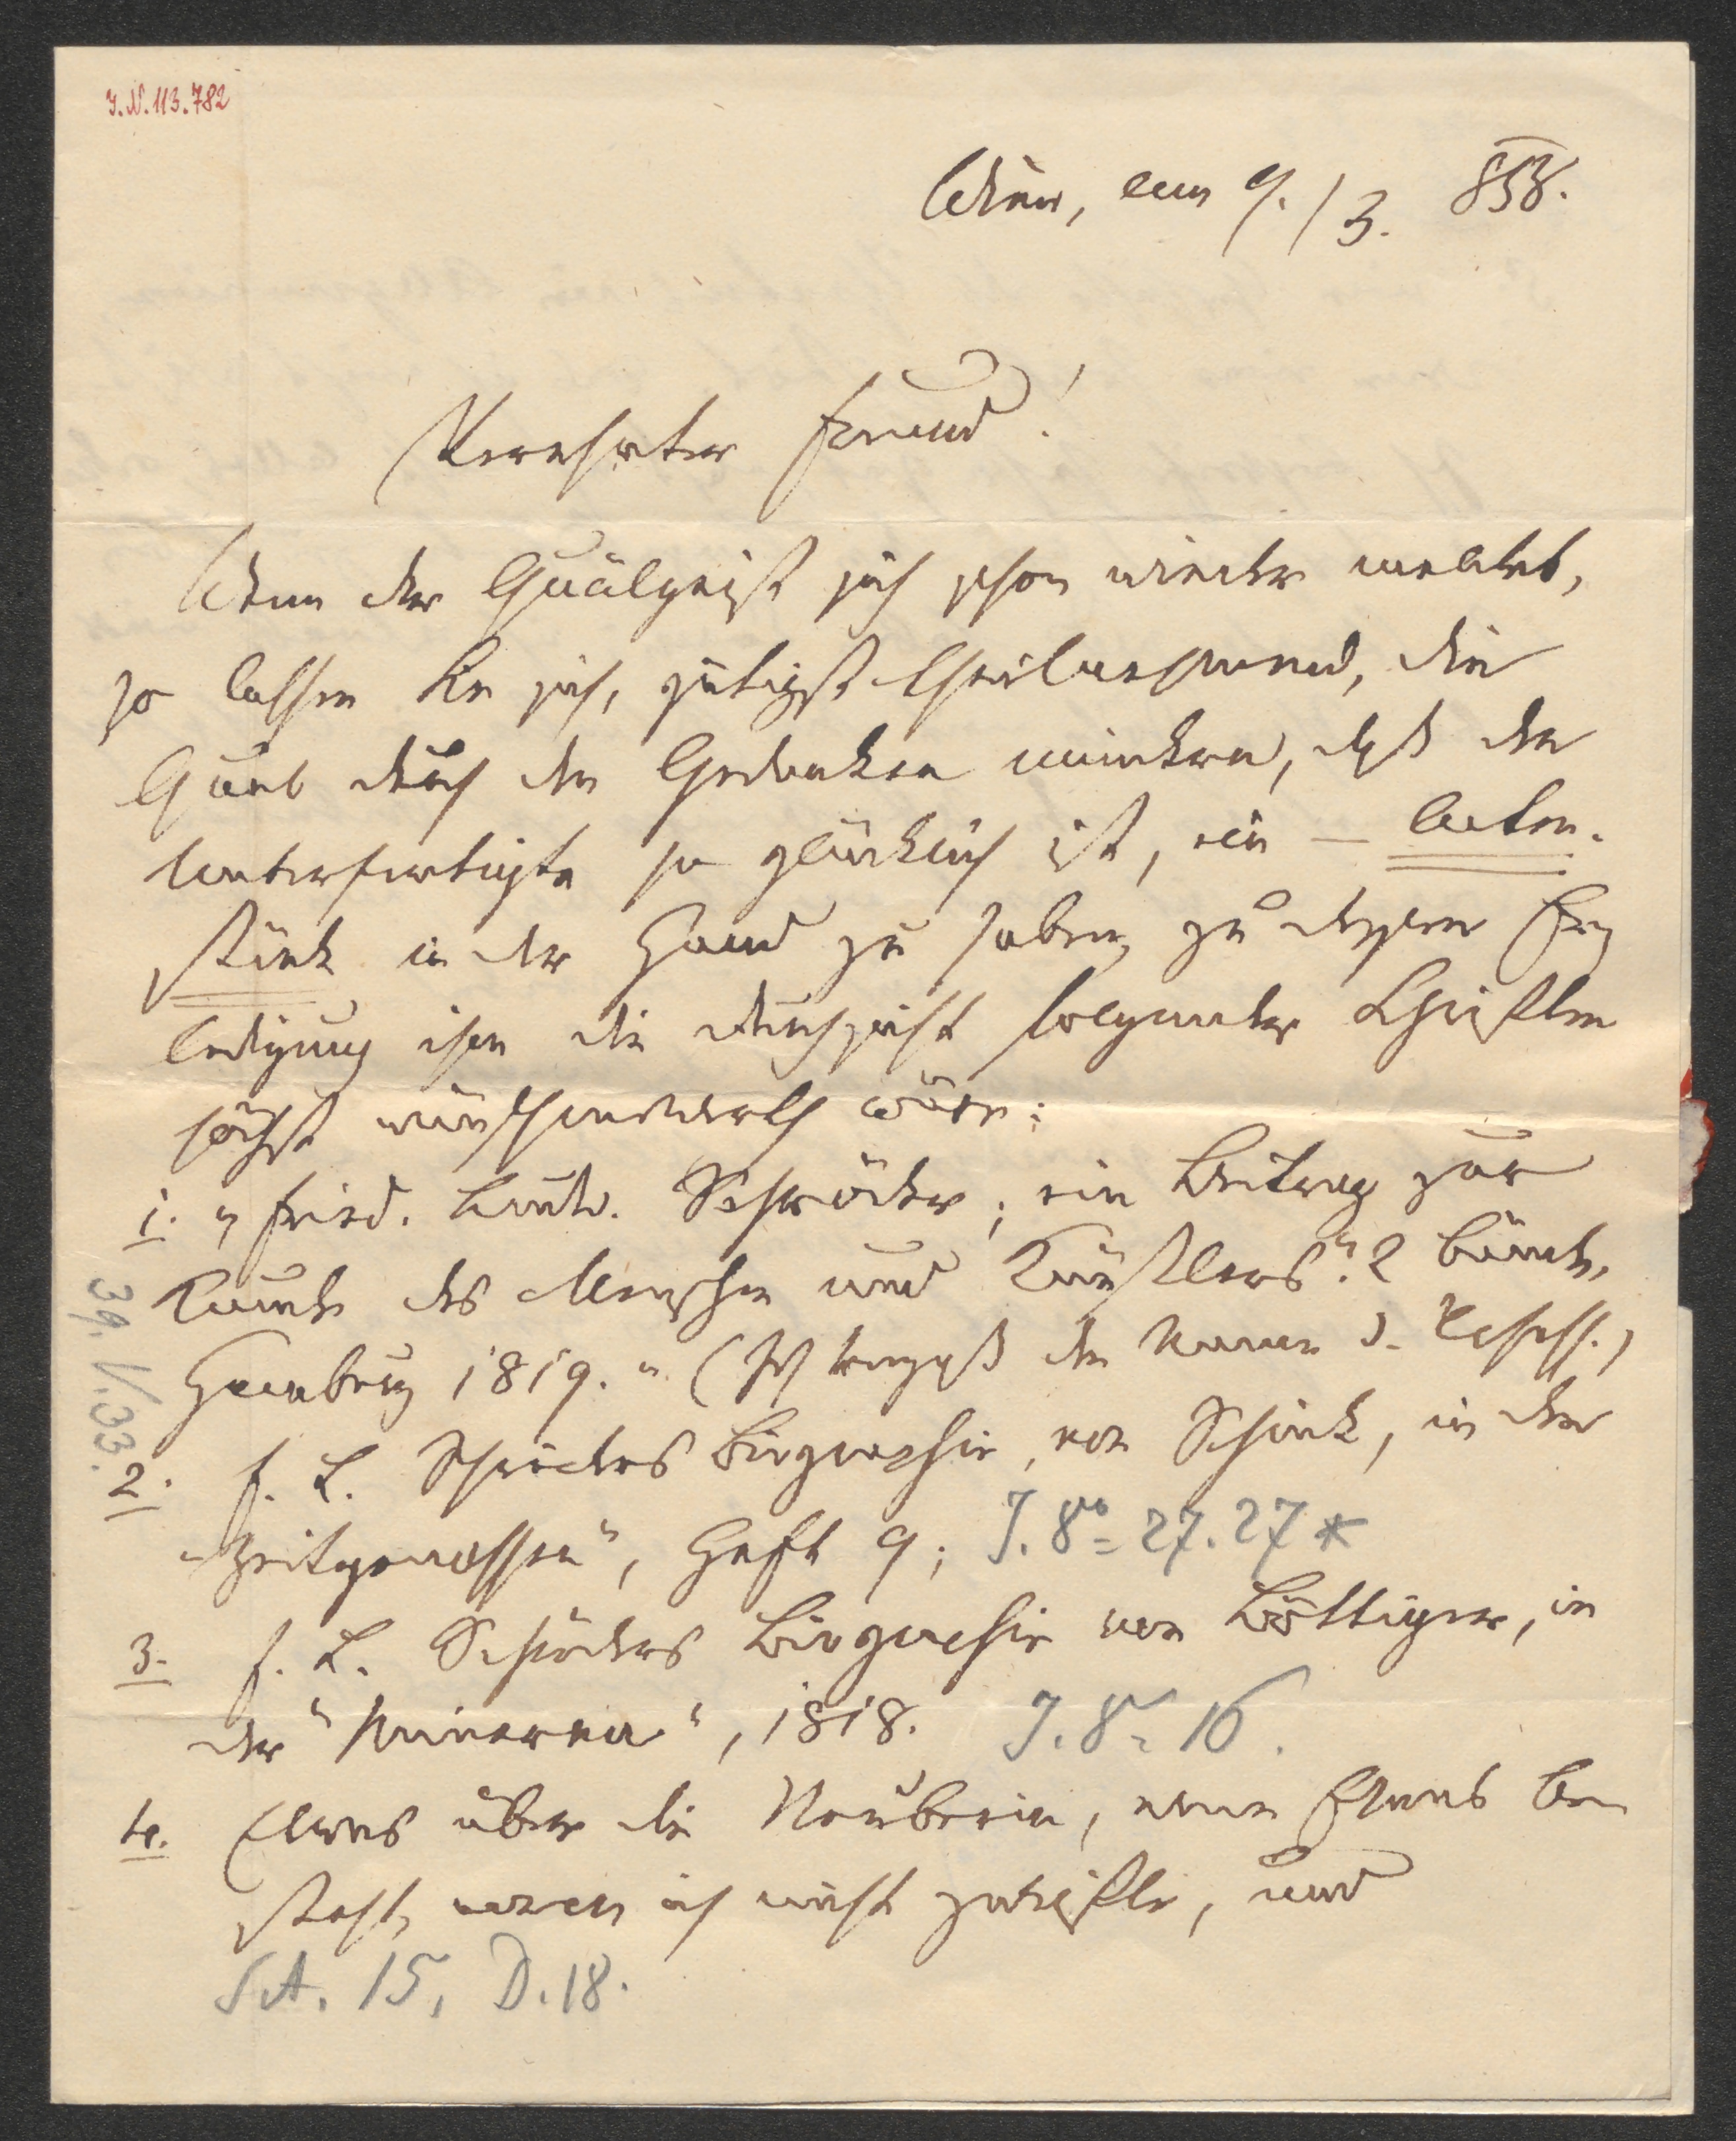 I.N. 113.782
Wien, am 9./3. 858.
Verehrter Freund!
Wenn der Quälgeist sich schon wieder meldet,
so lassen Sie sich, gütigst theilnehmend, die
Qual durch den Gedanken mindern, daß der
Unterfertigte so glücklich ist, ein – Acten-
stück in der Hand zu haben, zu dessen Er
ledigung ihm die Durchsicht folgender Schriften
höchst wünschenswerth wäre:
1. „Fried. Ludw. Schröder; ein Beitrag zur
Kunde des Menschen und Künstlers". 2 Bände,
Hamburg 1819." (Ich vergaß den Namen d. Verfass.)
2. F. L. Schröders Biographie, von Schink, in den
„Zeitgenossen", Heft 9; J. 8º = 27.27 *
3. F. L. Schröders Biographie von Böttiger, in
der „Minerva", 1818. J. 8º = 16.
4. Etwas über die Neuberin, wenn Etwas be
steht, woran ich nicht zweifle, und
S.A. 15, D. 18.
39. V. 33.